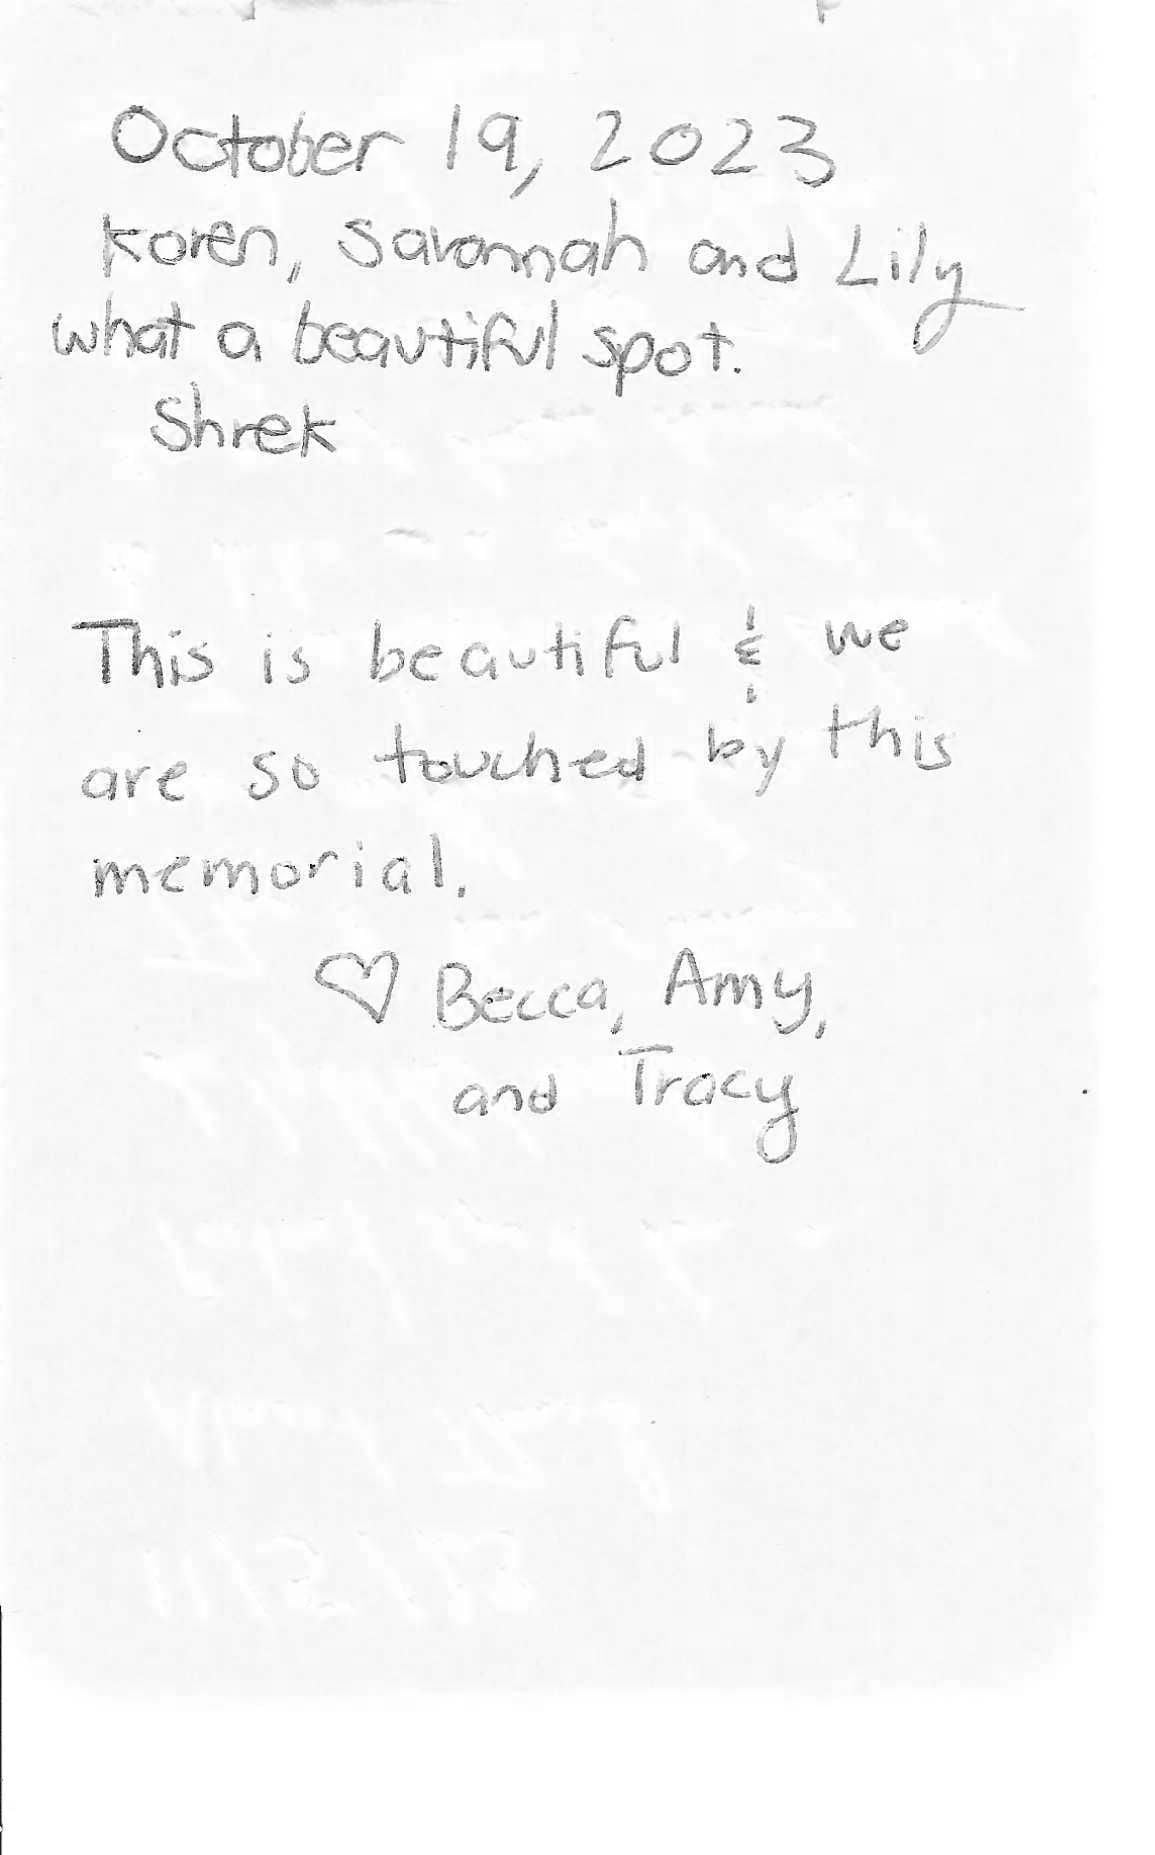 October 19, 2023
Koren, Savannah and Lily
what a beautiful spot.
Shrek
This is beautiful & we
are so touched by this
memorial.
♡ Becca, Amy,
and Tracy